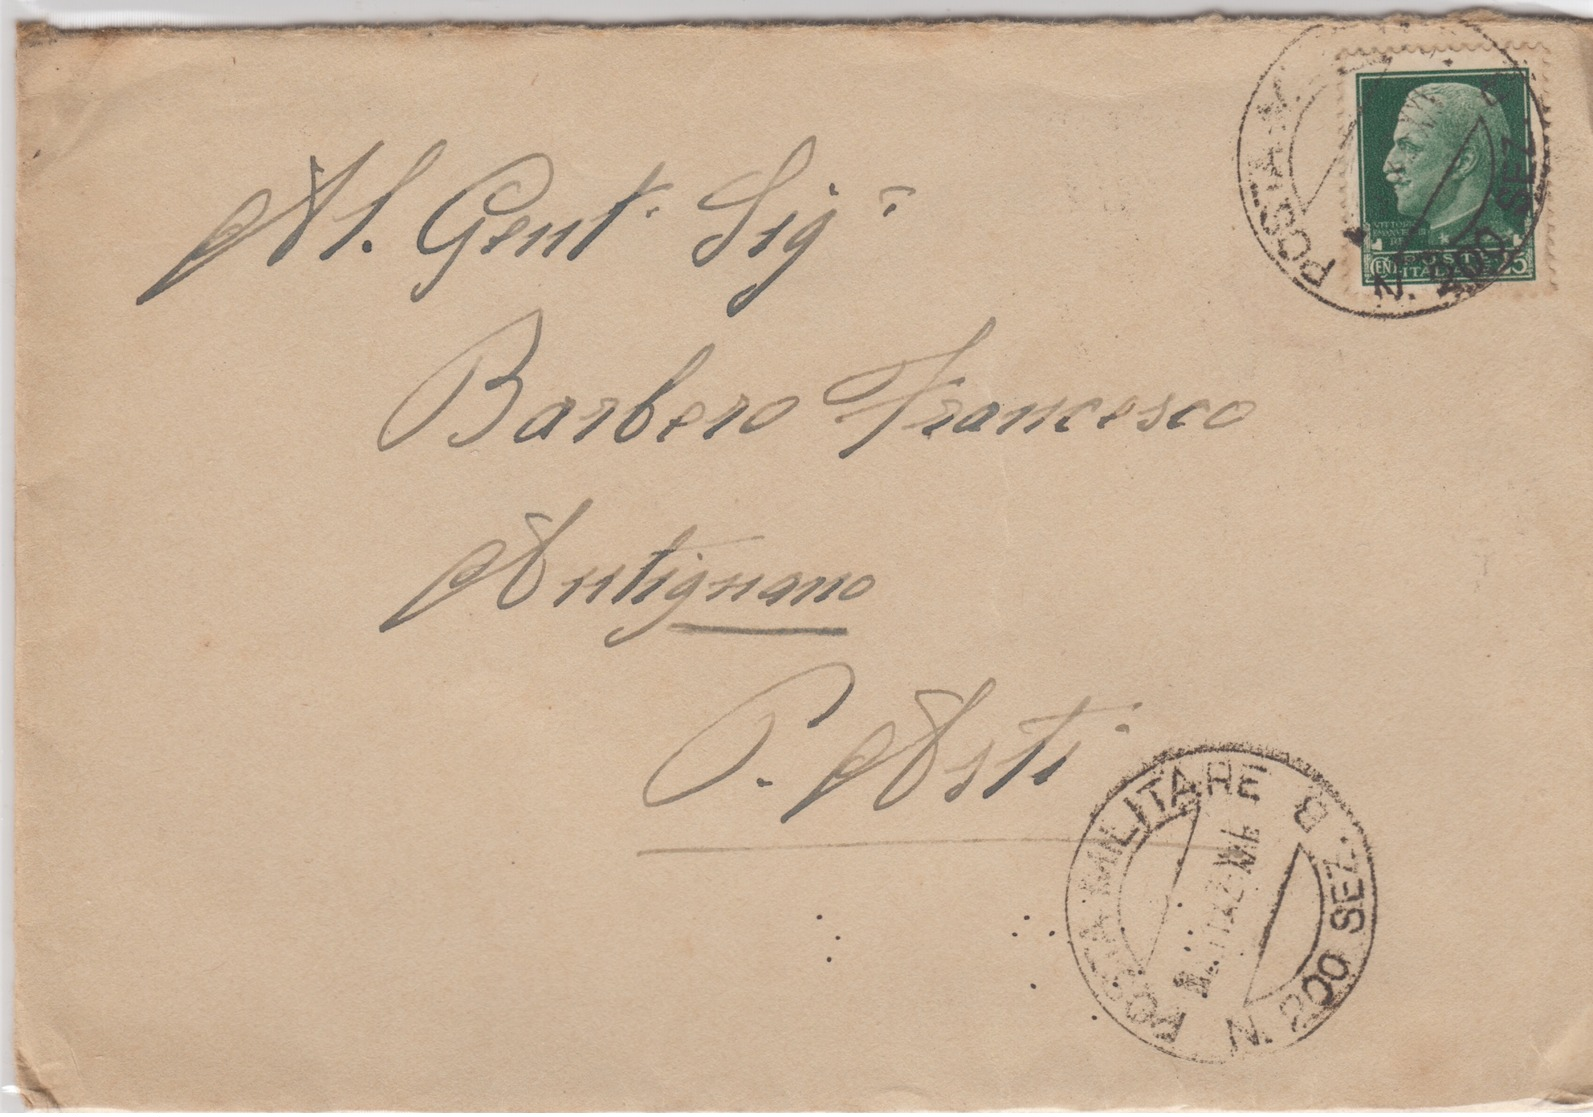 Al. Gent. Sigr
Barbero Francesco
Antignano
P. Asti
POSTA M
N. 200 SEZ
VITTORIO
EMANUELE III
RE
POSTE
CENT ITALIANE 25
POSTA MILITARE
N. 200 SEZ. B